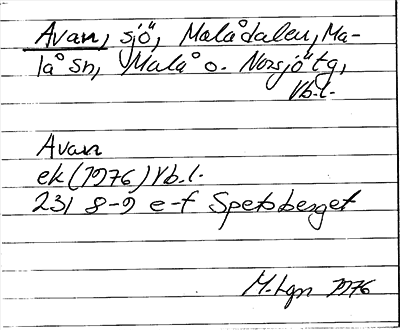 Avan, sjö, Malådalen, Ma-
lå sn, Malå o. Norsjö tg,
Vb.l.
Avan
ek (1976) Vb.l.
231 8-9 e-f Spetsberget
M. Lgn 1976